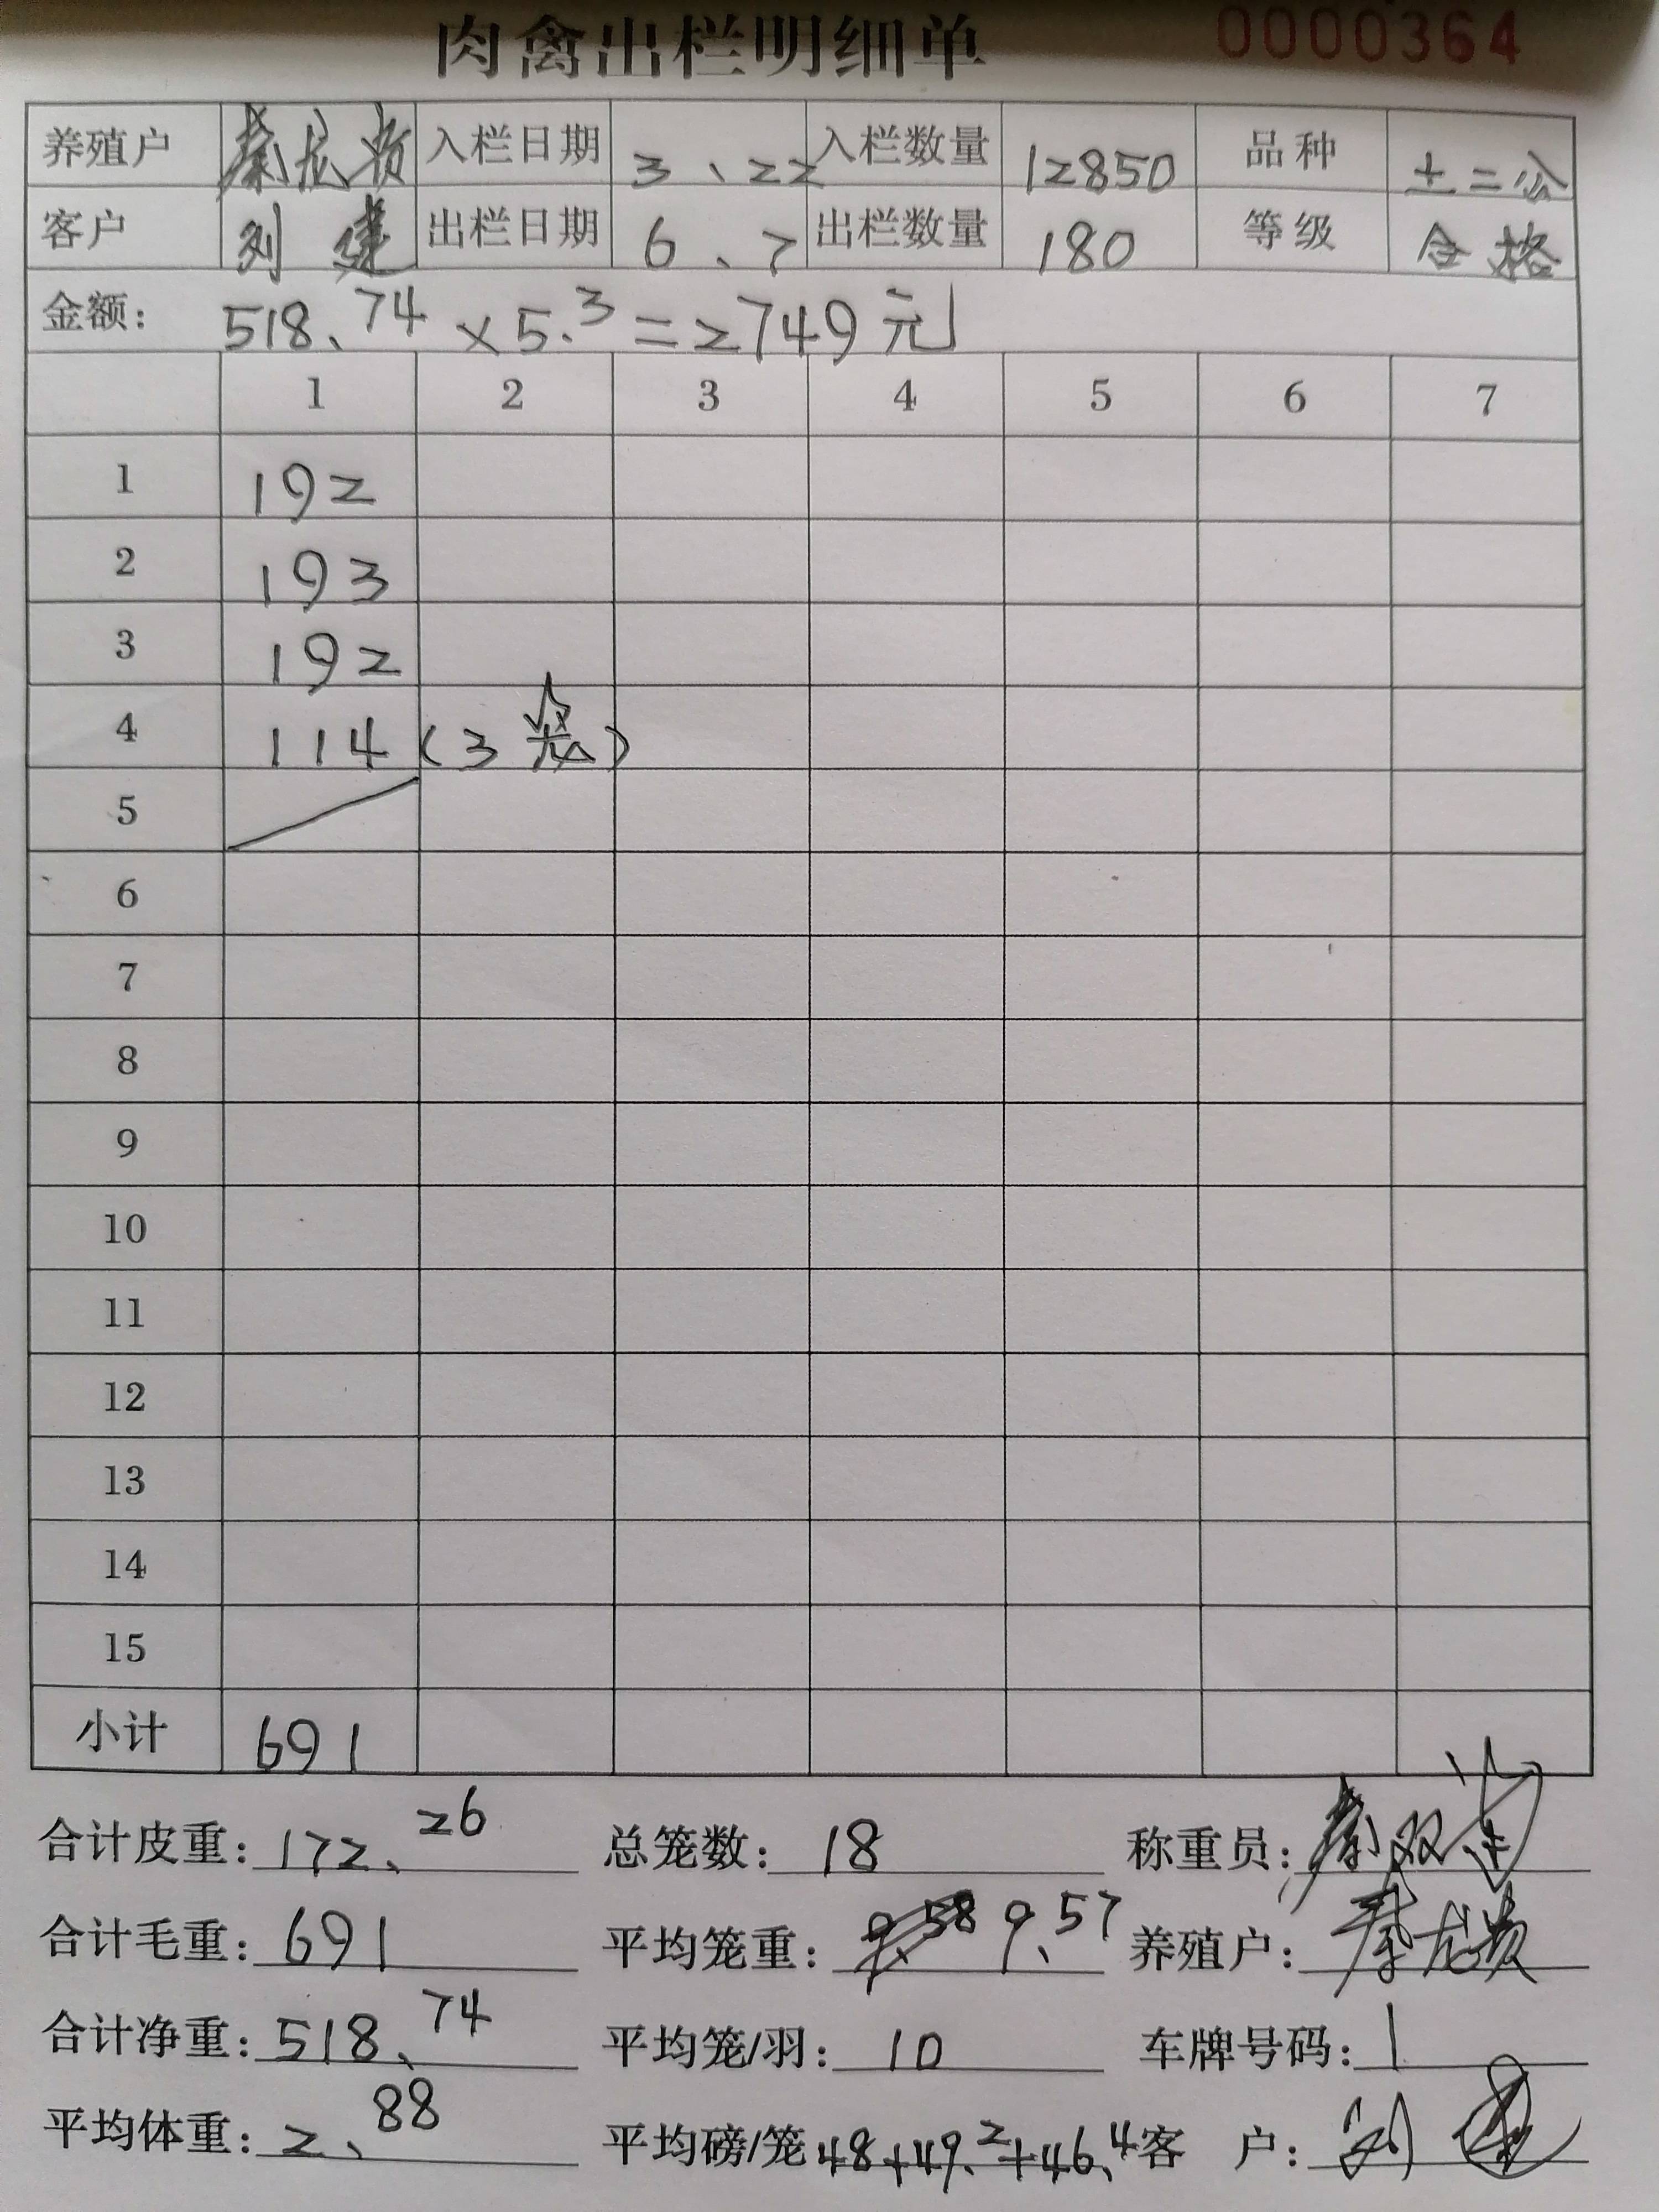 肉禽出栏明细单 0000364
养殖户 秦龙贵 入栏日期 3、22 入栏数量 12850 品种 土二公
客户 刘建 出栏日期 6、7 出栏数量 180 等级 合格
金额: 518、74 × 5.3 = 2749元
1 2 3 4 5 6 7
1 192
2 193
3 192
4 114 (3笼)
5
6
7
8
9
10
11
12
13
14
15
小计 691
合计皮重: 172、26 总笼数: 18 称重员: 秦双
合计毛重: 691 平均笼重: 9、58 9、57 养殖户: 秦龙贵
合计净重: 518、74 平均笼/羽: 10 车牌号码: 1
平均体重: 2、88 平均磅/笼 48+49.2+46.4 客 户: 刘建